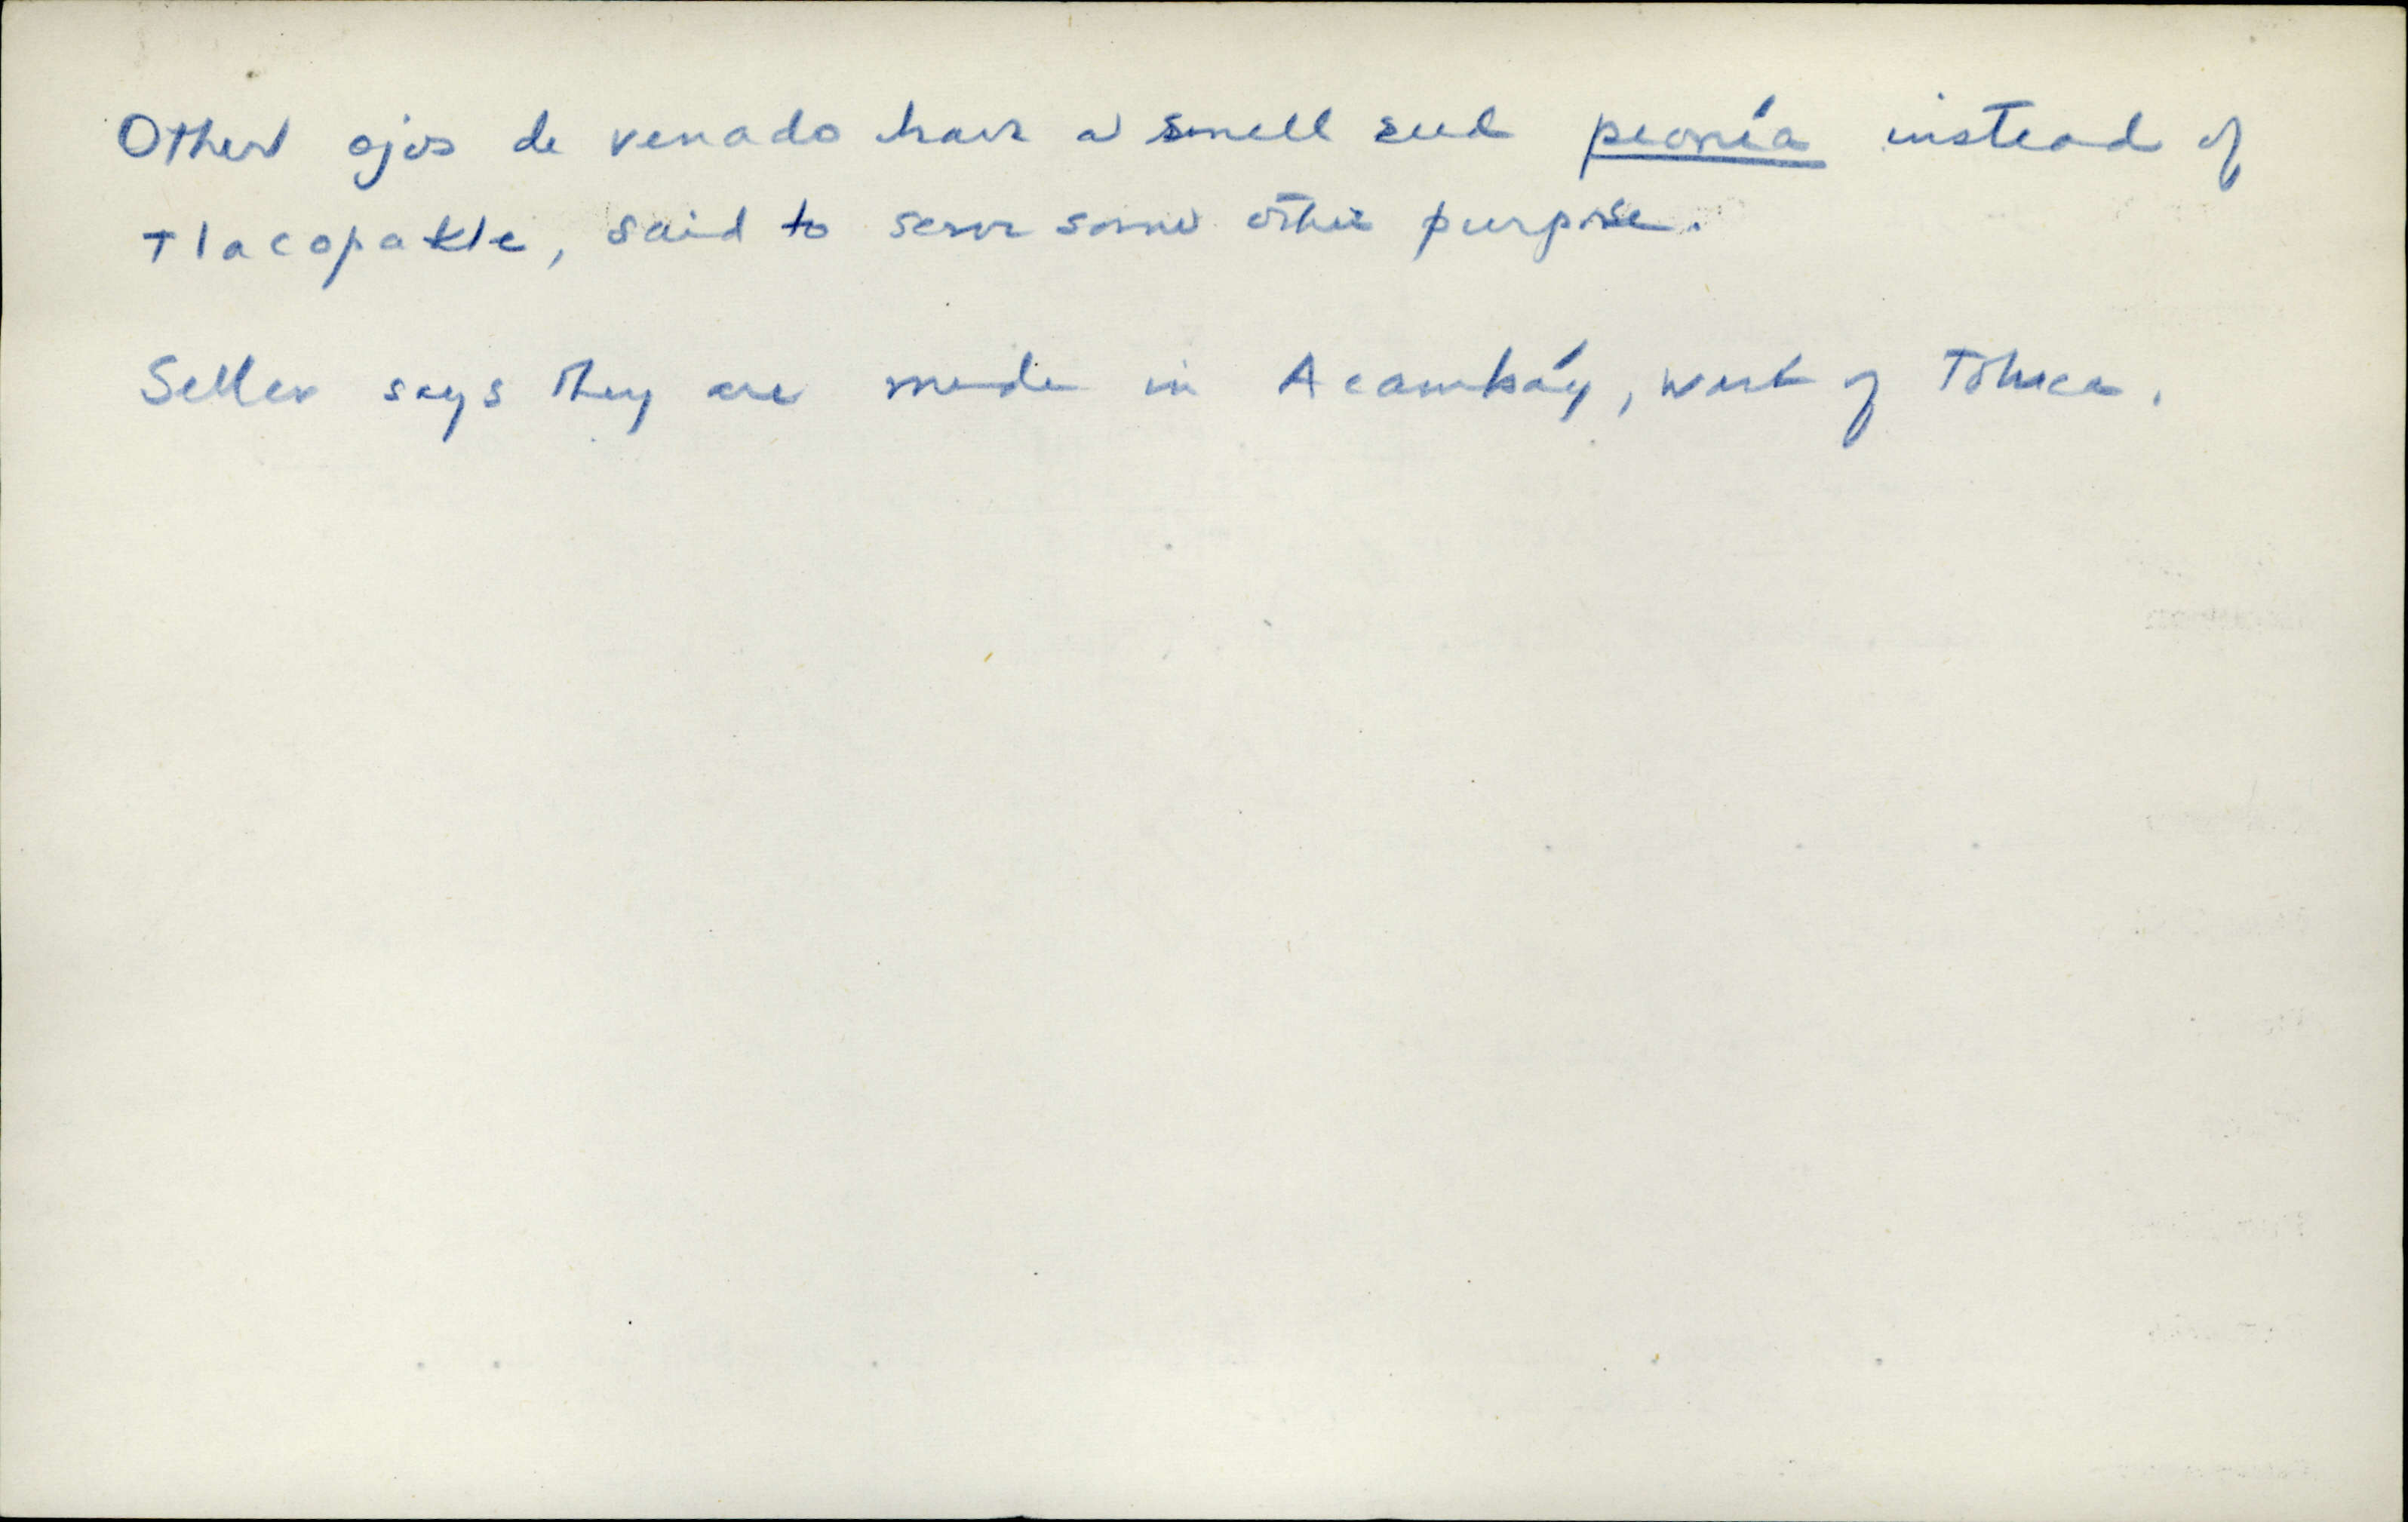 Other ojos de venado have a small seed peonía instead of
Tlacopatle, said to serve some other purpose.
Seller says they are made in Acambáy, west of Toluca.